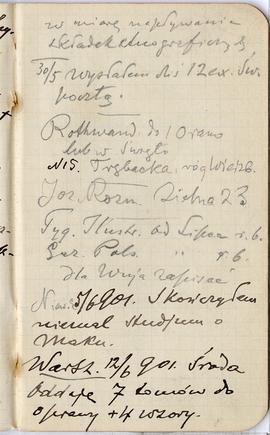 w miarę napływania
składek etnograficznych
30/5 wysłałem dziś 12 ex. Św.
pocztą.
Rothwand do 10 rano
lub w święto
N15. Trębacka, róg Wierzb.
Joz. Rozn. Zielna 23
Tyg. Illustr. od Lipca r. b.
Gaz. Pols. " r. b.
dla Wuja zapisać
5/6 901. Skończyłem
niemal studjum o
Maku.
Warsz. 12/6 901. Środa
Oddaję 7 tomów do
oprawy + 4 wzory.